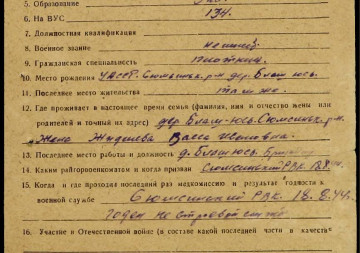 5. Образование
6. На ВУС 134.
7. Должностная квалификация
8. Военное звание
9. Гражданская специальность плотник
10. Место рождения УАССР. Сюмсинск. р-н дер. Блаж-юсь.
11. Последнее место жительства там же.
12. Где проживает в настоящее время семья (фамилия, имя и отчество жены или
родителей и точный их адрес) дер. Блаж-юсь. Сюмсинск. р-н.
Жена Васса Ивановна.
13. Последнее место работы и должность д. Блаж юсь.
14. Каким райгорвоенкоматом и когда призван Сюмсинский РВК
15. Когда и где проходил последний раз медкомиссию и результат годности к
военной службе Сюмсинский РВК. 18. 8. 44г.
Годен не строевой служб
16. Участие в Отечественной войне (в составе какой последней части в качестве